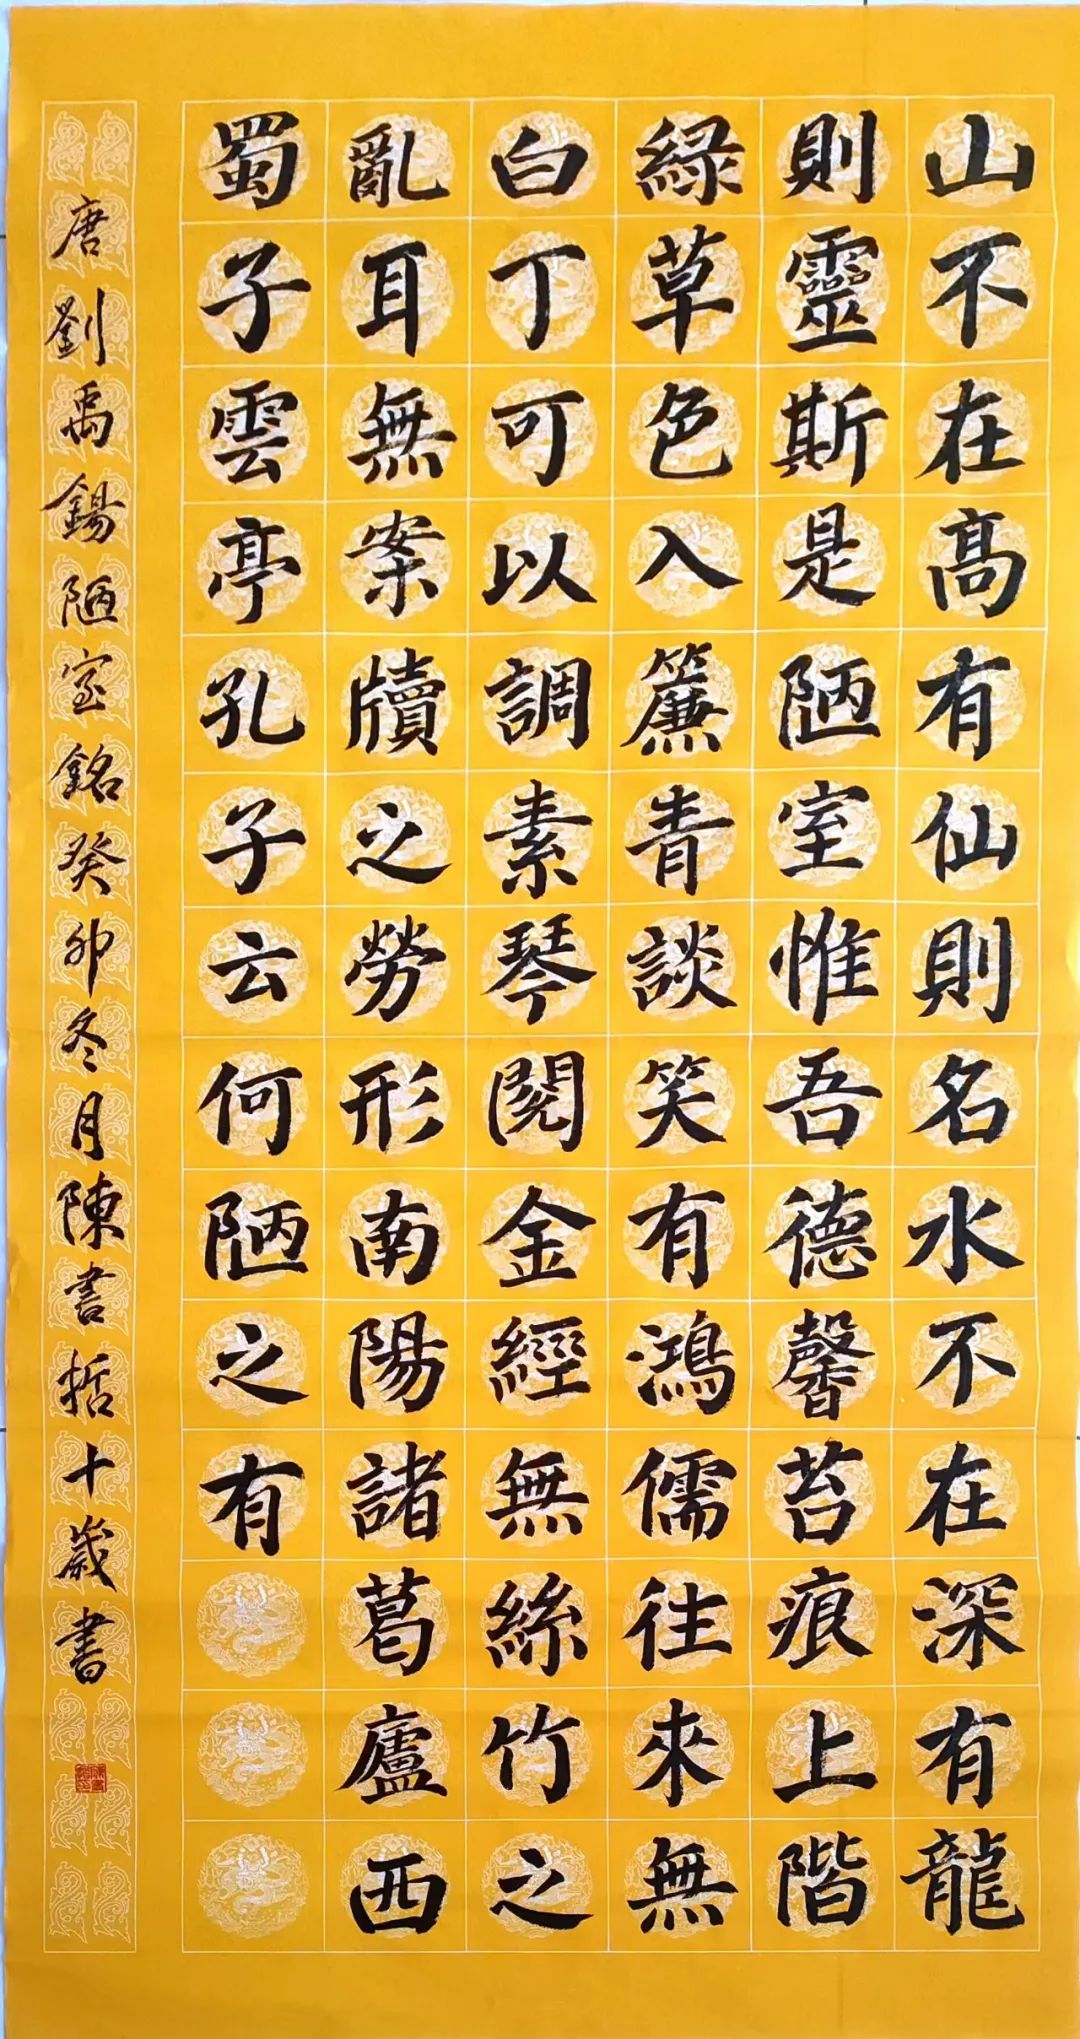 山不在髙有仙則名水不在深有龍
則靈斯是陋室惟吾德馨苔痕上階
緑草色入簾青談笑有鴻儒往來無
白丁可以調素琴閱金經無絲竹之
亂耳無案牘之勞形南陽諸葛廬西
蜀子雲亭孔子云何陋之有
唐劉禹錫陋室銘癸卯冬月陳書哲十歲書